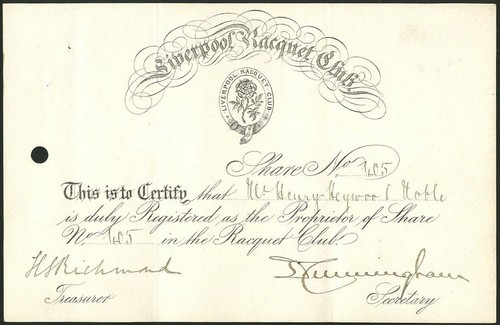 Liverpool Racquet Club
LIVERPOOL RACQUET CLUB
Share No 405
This is to Certify that Mr Henry Heywood Noble
is duly Registered as the Proprietor of Share
No 405 in the Racquet Club.
HSRichmond Cunningham
Treasurer Secretary